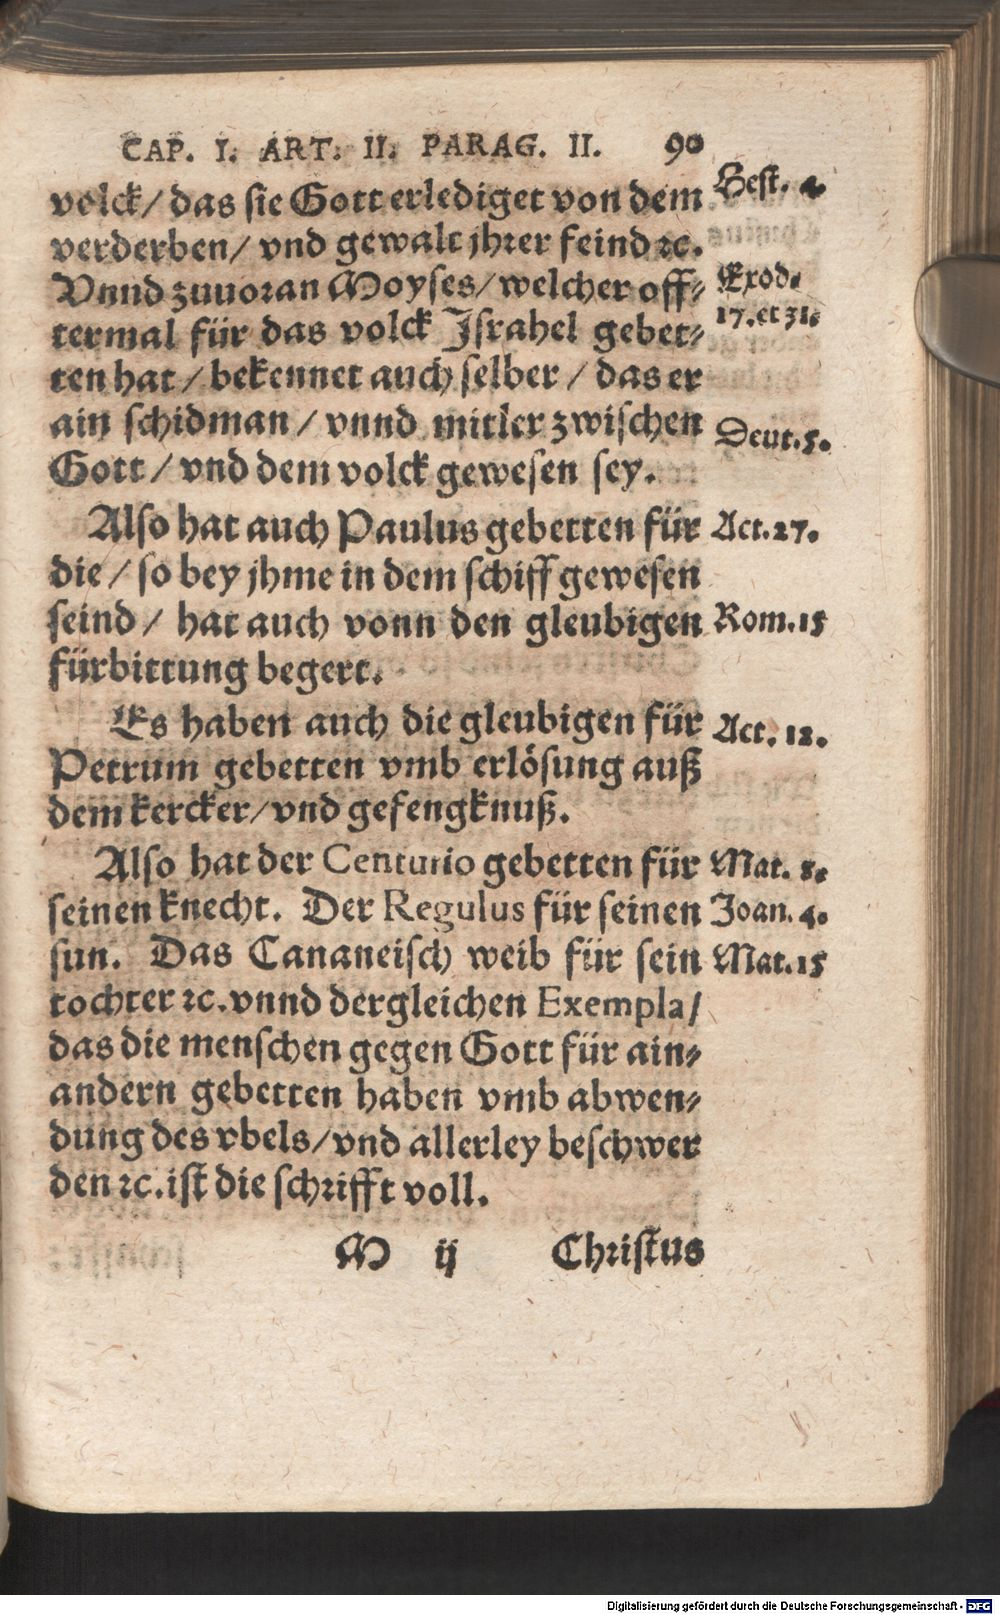 CAP. I. ART. II. PARAG. II. 90
volck/ das sie Gott erlediget von dem
Hest. 4.
verderben/ vnd gewalt jhrer feind ꝛc.
Vnnd zuuoran Moyses/ welcher off⸗
Exod.
termal für das volck Jsrahel gebet⸗
17. et 31.
ten hat / bekennet auch selber / das er
ain schidman / vnnd mitler zwischen
Deut. 5.
Gott / vnd dem volck gewesen sey.
Also hat auch Paulus gebetten für
Act. 27.
die / so bey jhme in dem schiff gewesen
seind / hat auch vonn den gleubigen
Rom. 15
fürbittung begert.
Es haben auch die gleubigen für
Act. 12.
Petrum gebetten vmb erlösung auß
dem kercker/ vnd gefengknuß.
Also hat der Centurio gebetten für
Mat. 8.
seinen knecht. Der Regulus für seinen
Joan. 4.
sun. Das Cananeisch weib für sein
Mat. 15
tochter ꝛc. vnnd dergleichen Exempla/
das die menschen gegen Gott für ain⸗
andern gebetten haben vmb abwen⸗
dung des vbels/ vnd allerley beschwer
den ꝛc. ist die schrifft voll.
M ij Christus
Digitalisierung gefördert durch die Deutsche Forschungsgemeinschaft - DFG